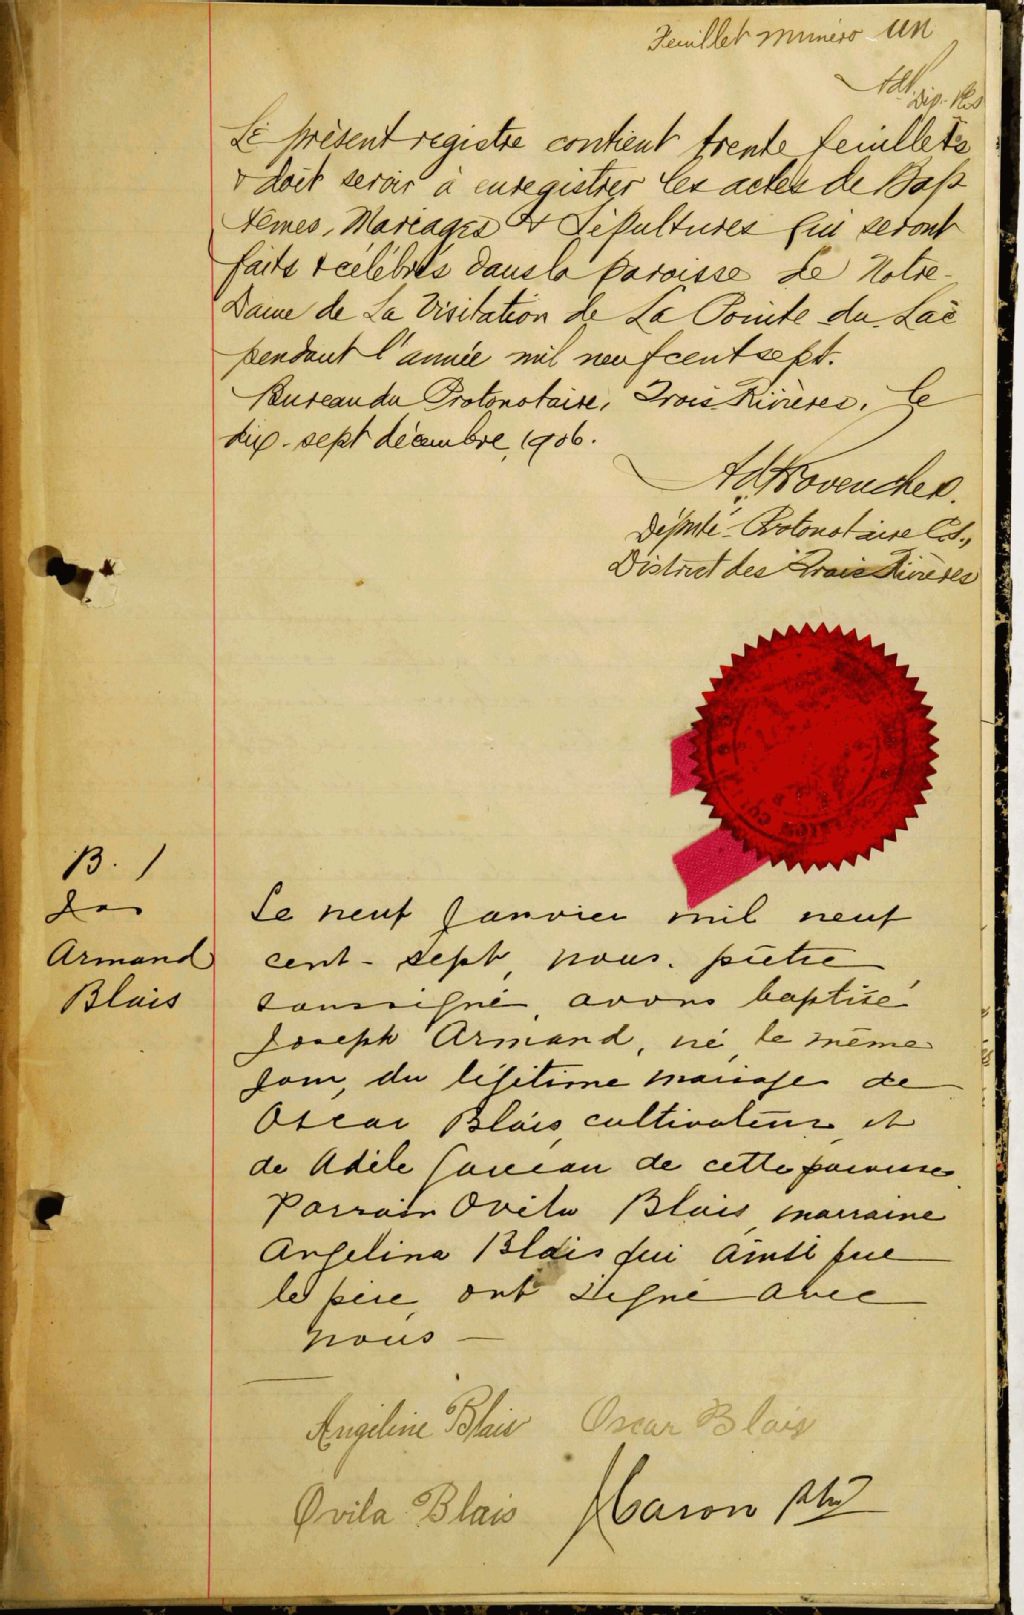 Feuillet numéro un
Le présent registre contient trente feuillets
& doit servir à enregistrer les actes de Bap
têmes, Mariages & Sépultures qui seront
faits & célébrés dans la paroisse de Notre-
Dame de La Visitation de La Pointe-du-Lac
pendant l'année mil neuf cent sept.
Bureau du Protonotaire, Trois-Rivières, le
dix-sept décembre, 1906.
Ad Provencher.
Député-Protonotaire C.S.,
District des Trois Rivières
B. 1
Jos
Armand
Blais
Le neuf Janvier mil neuf
cent-sept, nous, prêtre
soussigné, avons baptisé
Joseph Armand, né, le même
jour, du légitime mariage de
Oscar Blais, cultivateur, et
de Adèle de cette paroisse.
Parrain Ovila Blais, marraine
Angelina Blais qui ainsi que
le père, ont signé avec
nous —
Angéline Blais Oscar Blais
Ovila Blais